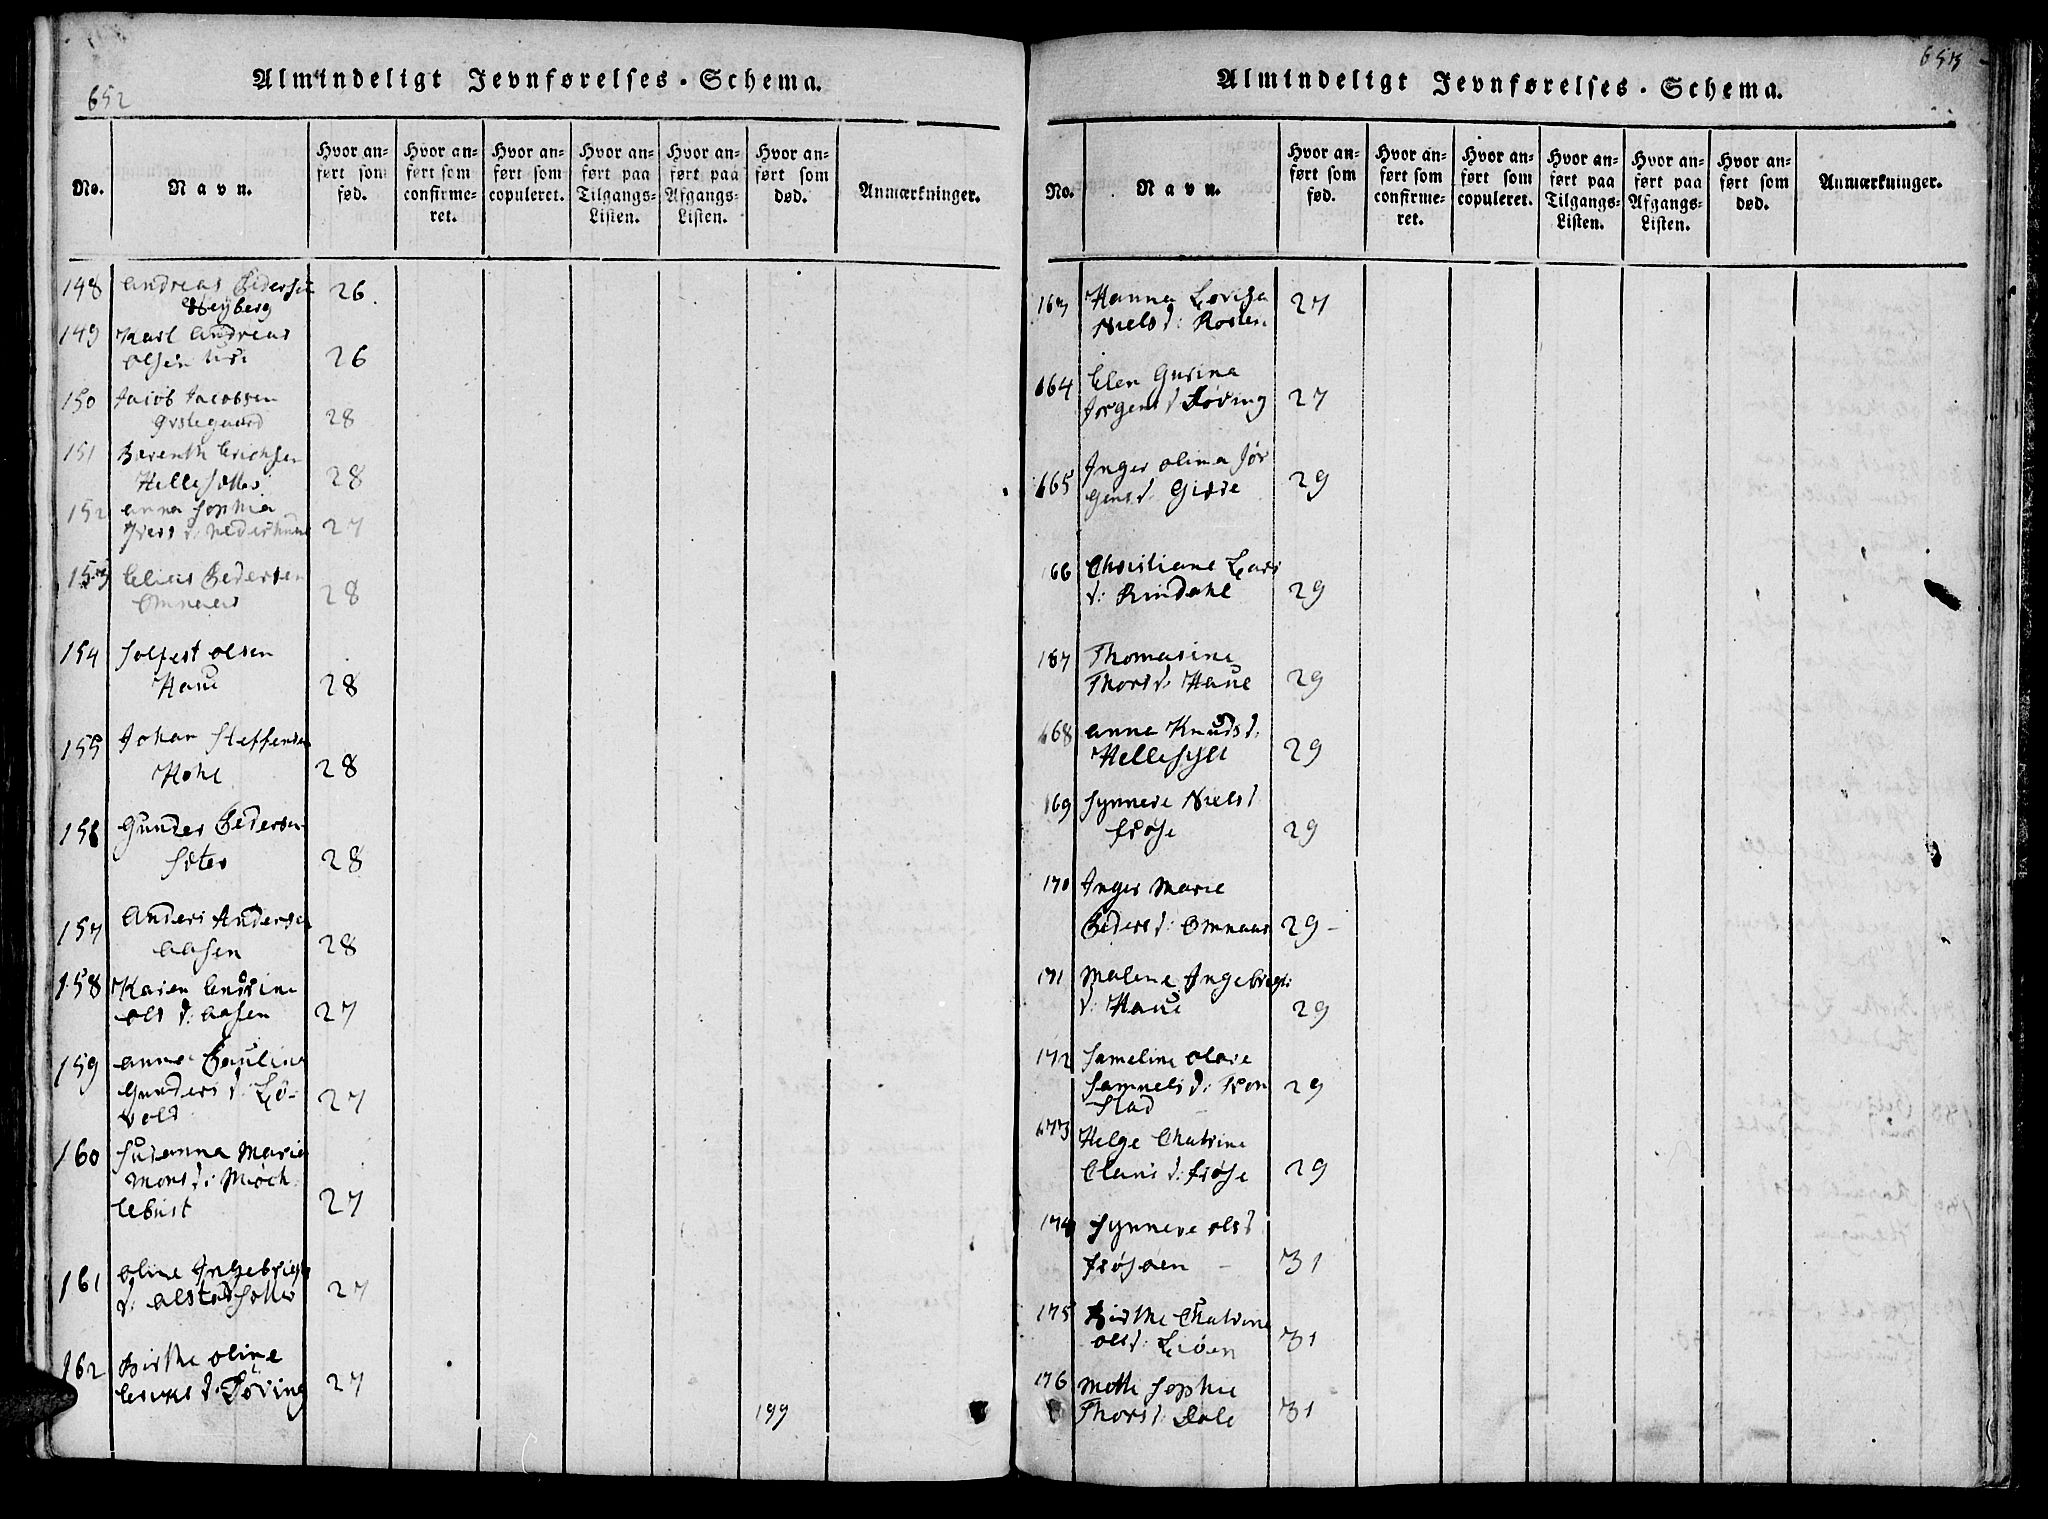 652
Almindeligt Jevnførelses-Schema.
No. Navn. Hvor anført som fød. Hvor anført som confirmeret. Hvor anført som copuleret. Hvor anført paa Tilgangs-Listen. Hvor anført paa Afgangs-Listen. Hvor anført som død. Anmærkninger.
148 Andreas Pedersen
Heyberg 26
149 Karl Andreas
Olsen Uri 26
150 Jacob Jacobsen
28
151 Berenth Erichsen
Hellesøtter 28
152 Anna Sophia
Ivers d: 27
153 Elias Pedersen
Omnaas 28
154 Solfest Olsen
Haue 28
155 Johan Steffensen
Hohl 28
156 Gunder Pedersen
Sæter 28
157 Anders Andersen
Aasen 28
158 Karen Andrine
Ols d: Aasen 27
159 Anna Paulina
Gunders d: Lø-
vold 27
160 Susanna Maria
Mons d: Møch
lebust 27
161 Oline Ingebrigt
d: 27
162 Birthe Oline
d: Døving 27
199
653
Almindeligt Jevnførelses-Schema.
No. Navn. Hvor anført som fød. Hvor anført som confirmeret. Hvor anført som copuleret. Hvor anført paa Tilgangs-Listen. Hvor anført paa Afgangs-Listen. Hvor anført som død. Anmærkninger.
163 Hanna Lovisa
Niels d: 27
164 Elen Gurina
Jørgens d Døving 27
165 Inger Olina Jør
gens d: 29
166 Christiane Lars
d: Rindahl 29
167 Thomasine
Thors d: Haue 29
168 Anne Knuds d:
Hellesylt 29
169 Synneve Niels d
Frøse 29
170 Inger Marie
Peders d: Omnaas 29
171 Malene Ingebrigt:
d: Haue 29
172 Sameline Olave
Samuels d: Kor
stad 29
173 Helge Chatrine
Claus d: Frøse 29
174 Synneve Ols d
Frøsøen 31
175 Birthe Chatrine
Ols d: Liøen 31
176 Mette Sophie
Thors d: Dale 31